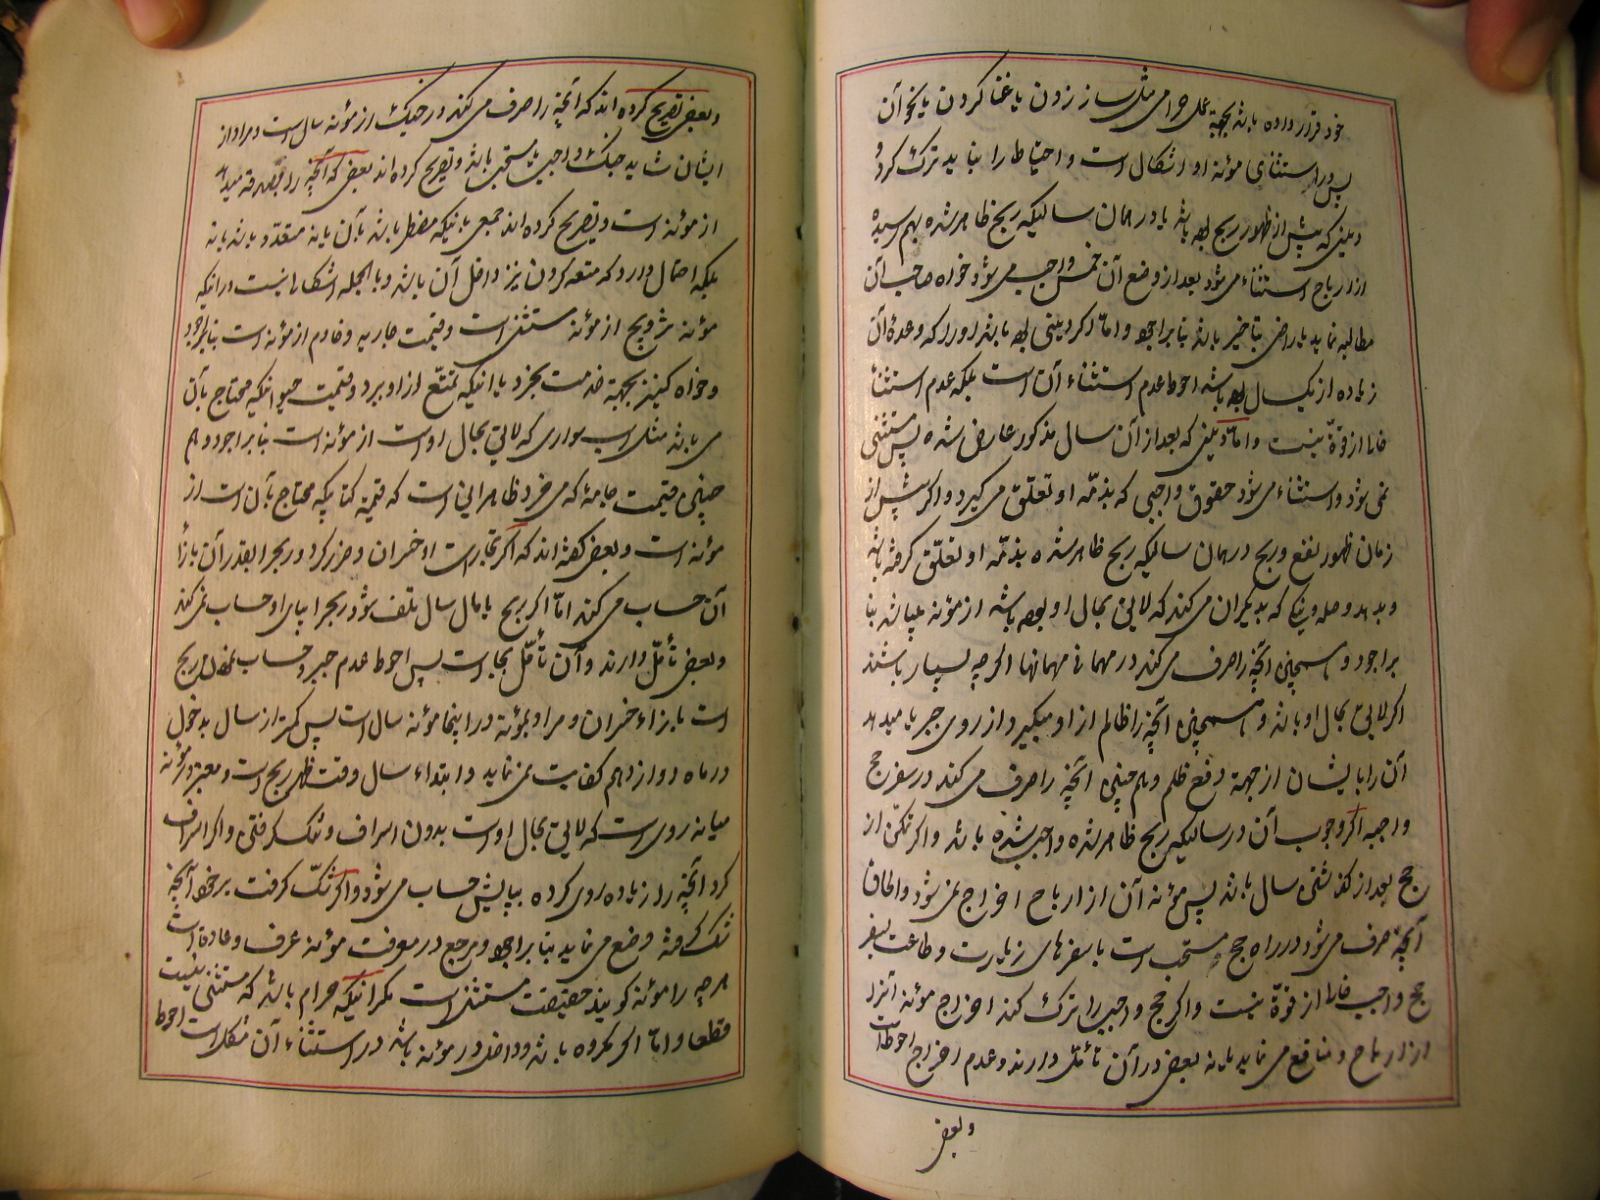 خود قرار داده باشد بجهة عمل حرامی مثل ساز زدن یا غنا کردن یا نحو آن
پس در استثنای مؤنه او اشکال است و احتیاط را نباید ترک کرد و
دینی که پیش از ظهور ربح بوده باشد یا در همان سالیکه ربح ظاهر شده بهم رسیده
از ارباح استثناء می شود بعد از وضع آن خمس واجب می شود خواه صاحب آن
مطالبه نماید یا راضی بتاخیر باشد بنا بر اجود و امّا اگر دینی بوده باشد او را که وعدهٔ آن
زیاده از یکسال بوده باشد احوط عدم استثناء آن است بلکه عدم استثنا
خالی از قوّة نیست و امّا دینی که بعد از آن سال مذکور عارض شده پس مستثنی
نمی شود و استثناء می شود حقوق واجبی که بذمّه او تعلّق می گیرد و اگر پیش از
زمان ظهور نفع و ربح در همان سالیکه ربح ظاهر شده بذمّه او تعلّق گرفته باشد
و بدهد وصله و نیکی که بدیگران می کند که لایق بحال او بوده باشد از مؤنه میباشد بنا
بر اجود و همچنین آنچه را صرف می کند در مهمانی مهمانها اگر چه بسیار باشند
اگر لایق بحال او باشد و همچنین آنچه را ظالم از او میگیرد از روی جبر یا میدهد
آن را بایشان از جهة دفع ظلم و هم چنین آنچه را صرف می کند در سفر حج
واجبه اگر وجوب آن در سالیکه ربح ظاهر شده واجب شده باشد و اگر تمکّن از
حج بعد از گذشتن سال باشد پس مؤنه آن از ارباح اخراج نمی شود و الحاق
آنچه صرف می شود در راه حج مستحب است با سفرهای زیارت و طاعت بسفر
حج واجب خالی از قوّة نیست و اگر حج واجبی را ترک کند اخراج مؤنه آنرا
از ارباح و منافع می نماید یا نه بعضی در آن تأمّل دارند و عدم اخراج احوط است
و بعضی
و بعضی تصریح کرده اند که آنچه را صرف می کند در جنگ از مؤنه سال است و مراد از
ایشان شاید جنگ واجبی یا مستحبی باشد و تصریح کرده اند بعضی که آنچه را بصدقه میدهد
از مؤنه است و تصریح کرده اند جمعی بانیکه مضطر باشد بآن یا نه متعدّد باشد یا نه
بلکه احتمال دارد که متعه کردن نیز داخل آن باشد و بالجمله اشکالی نیست در انیکه
مؤنه تزویج از مؤنه مستثنی است و قیمت جاریه و خادم از مؤنه است بنا بر اجود
و خواه کنیز بجهة خدمت بخرد یا انیکه تمتّع از او ببرد و قیمت حیوانیکه محتاج بآن
می باشد مثل اسب سواری که لایق بحال او است از مؤنه است بنا بر اجود و هم
چنین قیمت جامهٔ که می خرد ظاهر این است که قیمة کتابیکه محتاج بآن است از
مؤنه است و بعضی گفته اند که اگر تجارت او خسران و ضرر کرد و ربح را بقدر آن بازاء
آن حساب می کند امّا اگر ربح یا مال سال تلف شود ربح را بپای او حساب نمی کند
و بعضی تأمّل دارند و آن تأمّل بجا است پس احوط عدم جبر و حساب نمودن ربح
است بازاء خسران و مراد بمؤنه در اینجا مؤنه سال است پس کمتر از سال بدخول
در ماه دوازدهم کفایت نمی نماید و ابتداء سال وقت ظهور ربح است و معتبر در مؤنه
میانه روی است که لایق بحال او است بدون اسراف و تنگ گرفتن و اگر اسراف
کرد آنچه را زیاده روی کرده بپایش حساب می شود و اگر تنگ گرفت بر خود آنچه
تنگ گرفته وضع می نماید بنا بر اجود و مرجع در معرفت مؤنه عرف و عادة است
هر چه را مؤنه گویند حقیقت مستثنی است مگر انیکه حرام باشد که مستثنی نیست
قطعا و امّا اگر مکروه باشد و داخل در مؤنه باشد در استثناء آن مشکل است احوط